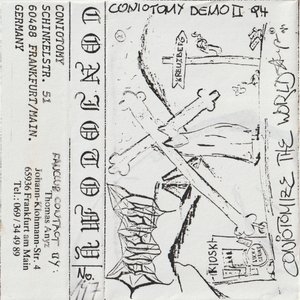 CONIOTOMY
SCHINKELSTR. 51
60488 FRANKFURT/MAIN.
GERMANY
FANCLUB CONTACT BY:
Thomas Anyz
Johann-Klohmann-Str. 4
65936 Frankfurt am Main
Tel.: 069/ 34 49 89
CONIOTOMY
No. 117
CONIOTOMY DEMO II 94
KREUZBERG
CONIOTOMY
KIOSK
CONIOTOMIZE THE WORLD